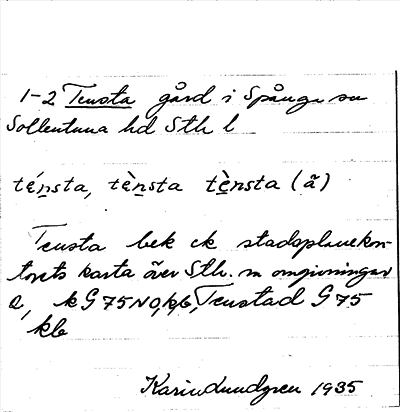 1-2 Tensta gård i Spånga sn
Sollentuna hd Sth l
tén̲sta, tèn̲sta tè̲nsta (ã)
Tensta bek ck stadsplanekon-
torets karta över Sth. m omgivningar
k G 75 NO, kb, Tenstad G 75
kb
Karin Lundgren 1935